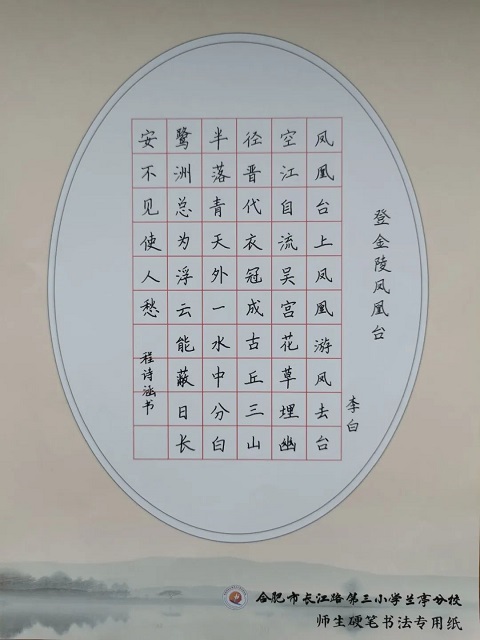 登金陵凤凰台
李白
凤凰台上凤凰游风去台
空江自流吴宫花草埋幽
径晋代衣冠成古丘三山
半落青天外一水中分白
鹭洲总为浮云能蔽日长
安不见使人愁
程诗涵书
合肥市长江路第三小学兰亭分校
师生硬笔书法专用纸